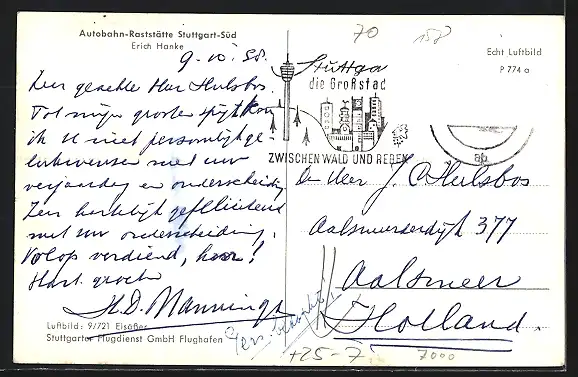 Autobahn-Raststätte Stuttgart-Süd
Erich Hanke
9-10-58.
Zeer geachte Heer Hulsbos.
Tot mijn groote spijt kon
ik U niet persoonlijk ge
lukwensen met uw
verjaardag en onderscheiding
Zeer hartelijk gefeliciteerd
met uw onderscheiding.
Volop verdiend, hoor!
Hart. groeten
H.D. Manninga
Luftbild: 9/721 Elsäßer
Stuttgarter Flugdienst GmbH Flughafen
70
158
Echt Luftbild
P 774 a
Stuttga
die Großstad
ZWISCHEN WALD UND REBEN
Den Heer J. C. Hulsbos
Aalsmeerderdijk 377
Aalsmeer
Holland.
+25-7
7000